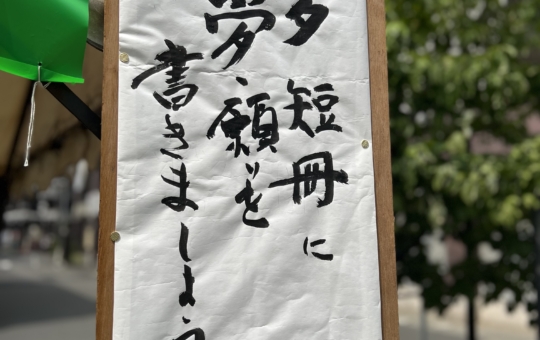 夕 短冊に
夢・願いを
書きましょう